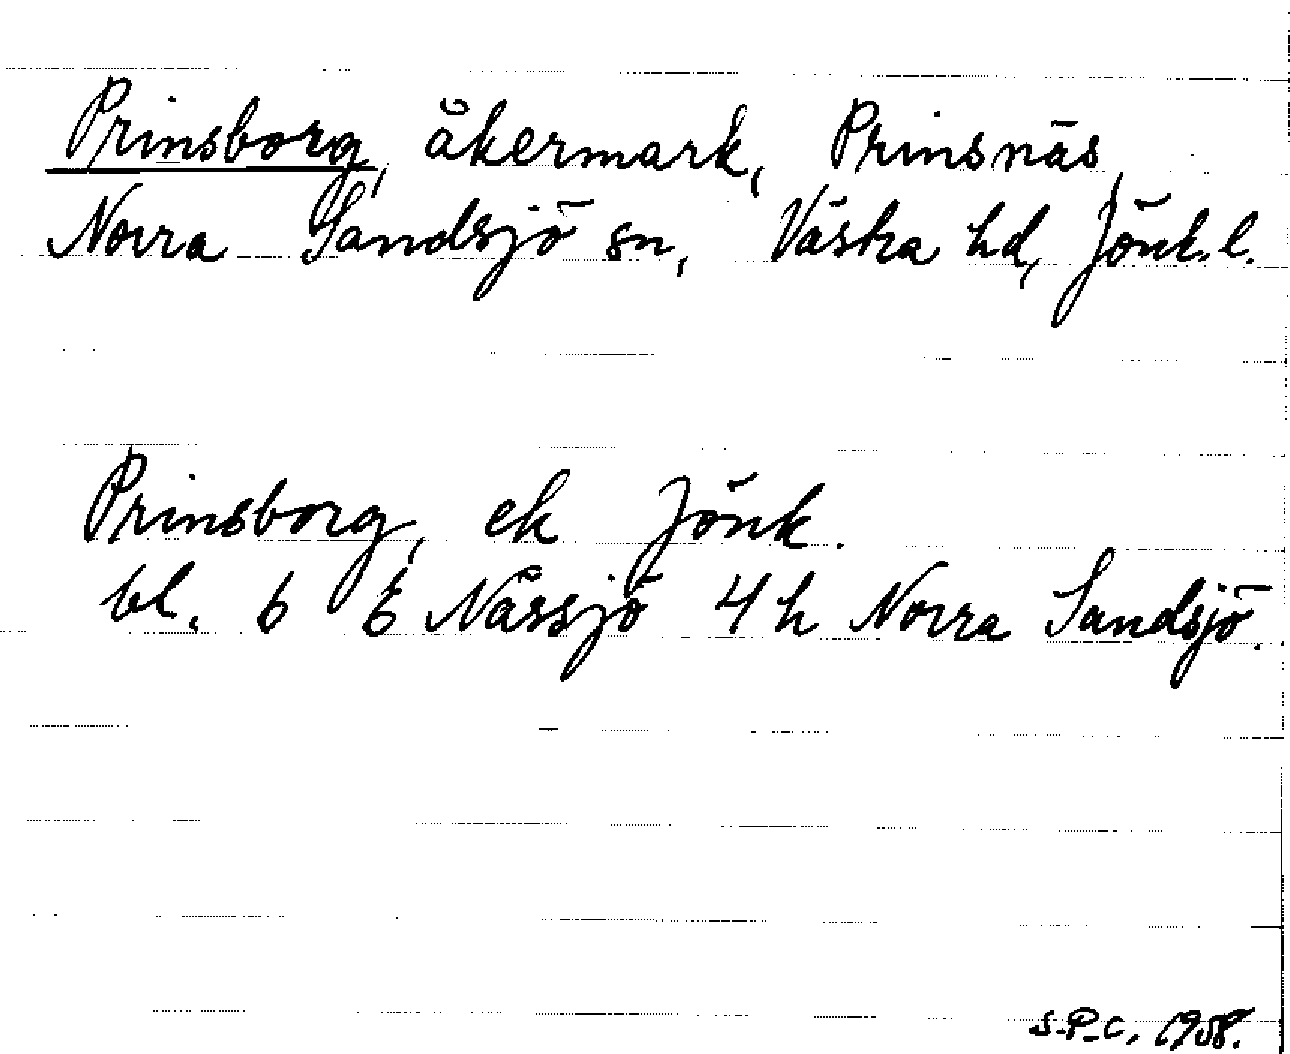 Prinsborg, åkermark, Prinsnäs,
Norra Sandsjö sn, Västra hd, Jönk. l.
Prinsborg, ek Jönk.
bl. 6 E Nässjö 4 h Norra Sandsjö.
S.P-C, 1958.